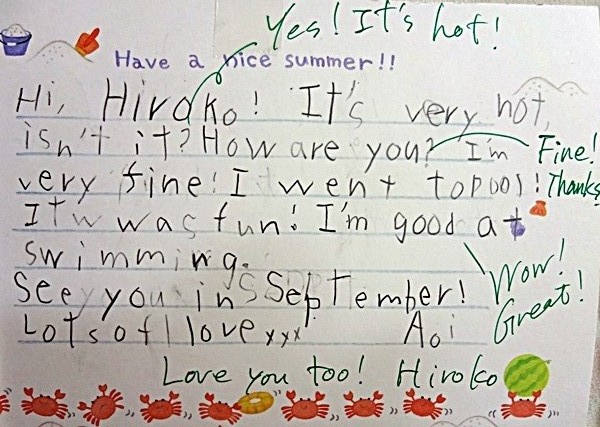 Yes! It's hot!
Have a nice summer!!
Hi, Hiroko! It's very hot,
isn't it? How are you? I'm
Fine!
very fine! I went topool!
Thanks
Itw was fun! I'm good at
swimming.
Wow!
Great!
See you in SSeptember!
Lots of llove xxx Aoi
Love you too! Hiroko